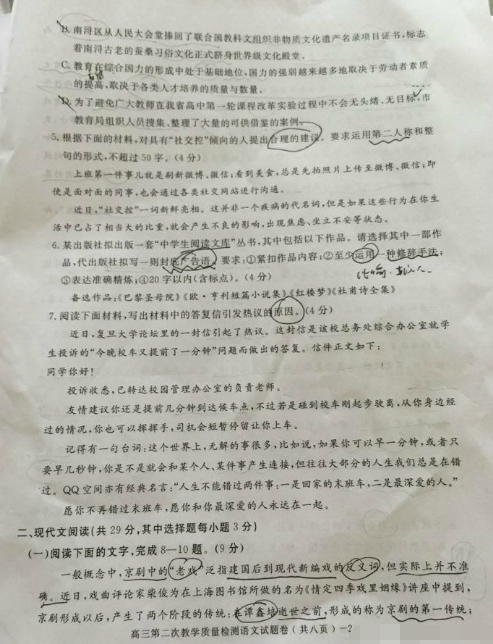 B.南浔区从人民大会堂捧回了联合国教科文组织非物质文化遗产名录项目证书,标志
着南浔古老的蚕桑习俗文化正式跻身世界级文化殿堂。
C.教育在综合国力的形成中处于基础地位,国力的强弱越来越多地取决于劳动者素质
的提高,取决于各类人才培养的质量与数量。
D.为了避免广大教师在我省高中第一轮课程改革实验过程中不会无头绪、无目标,市
教育局组织人员搜集、整理了大量的可供借鉴的案例。
5.根据下面的材料,对具有“社交控”倾向的人提出合理的建议。要求运用第二人称和整
句的形式,不超过50字。(4分)
上班第一件事儿就是刷新微博、微信;看到美食,总是先拍照片上传至微博、微信;即
使是面对面的同事,也会通过各类社交网站进行沟通。
近日,“社交控”一词新鲜亮相。这并非一个疾病的代名词,但是如果这些行为在你生
活中已占了相当大的比重,就会产生不良的影响,出现焦虑、坐立不安等状态。
6.某出版社拟出版一套“中学生阅读文库”丛书,其中包括以下作品。请选择其中一部作
品,代出版社拟写一则封底广告语。要求:①紧扣作品内容;②至少运用一种修辞手法;
③表达准确精炼;④20字以内(含标点)。(4分)
备选作品:《巴黎圣母院》《欧·亨利短篇小说集》《红楼梦》《杜甫诗全集》
7.阅读下面材料,写出材料中的答复信引发热议的原因。(4分)
近日,复旦大学论坛里的一封信引起了热议。这封信是该校总务处综合办公室就学
生投诉的“今晚校车又提前了一分钟”问题而做出的答复。信件正文如下:
同学你好!
投诉收悉,已转达校园管理办公室的负责老师。
友情建议你还是提前几分钟到达候车点,不过若是碰到校车刚起步驶离,从你身边经
过的情况,你也可以挥挥手,司机会短暂停留让你上车。
记得有一句台词:这个世界上,无解的事很多,比如说,如果你可以早一分钟,或者只
要早几秒钟,你是不是就会和某个人、某件事产生连接,但往往大部分的人生我们总是在错
过。QQ空间亦有经典名言:“人生不能错过两件事:一是回家的末班车,二是最深爱的人。”
愿你不再错过末班车,愿你和你最深爱的人永远在一起。
二、现代文阅读(共29分,其中选择题每小题3分)
(一)阅读下面的文字,完成8—10题。(9分)
一般概念中,京剧中的“老戏”泛指建国后到现代新编戏的反义词,但实际上并不准
确。近日,戏曲评论家梁俊为在上海图书馆所做的名为《情定四季戏里姻缘》讲座中提到,
京剧形成以后,产生了两个阶段的传统:在谭鑫培逝世之前,形成的称为京剧的第一传统;
高三第二次教学质量检测语文试题卷(共八页)—2